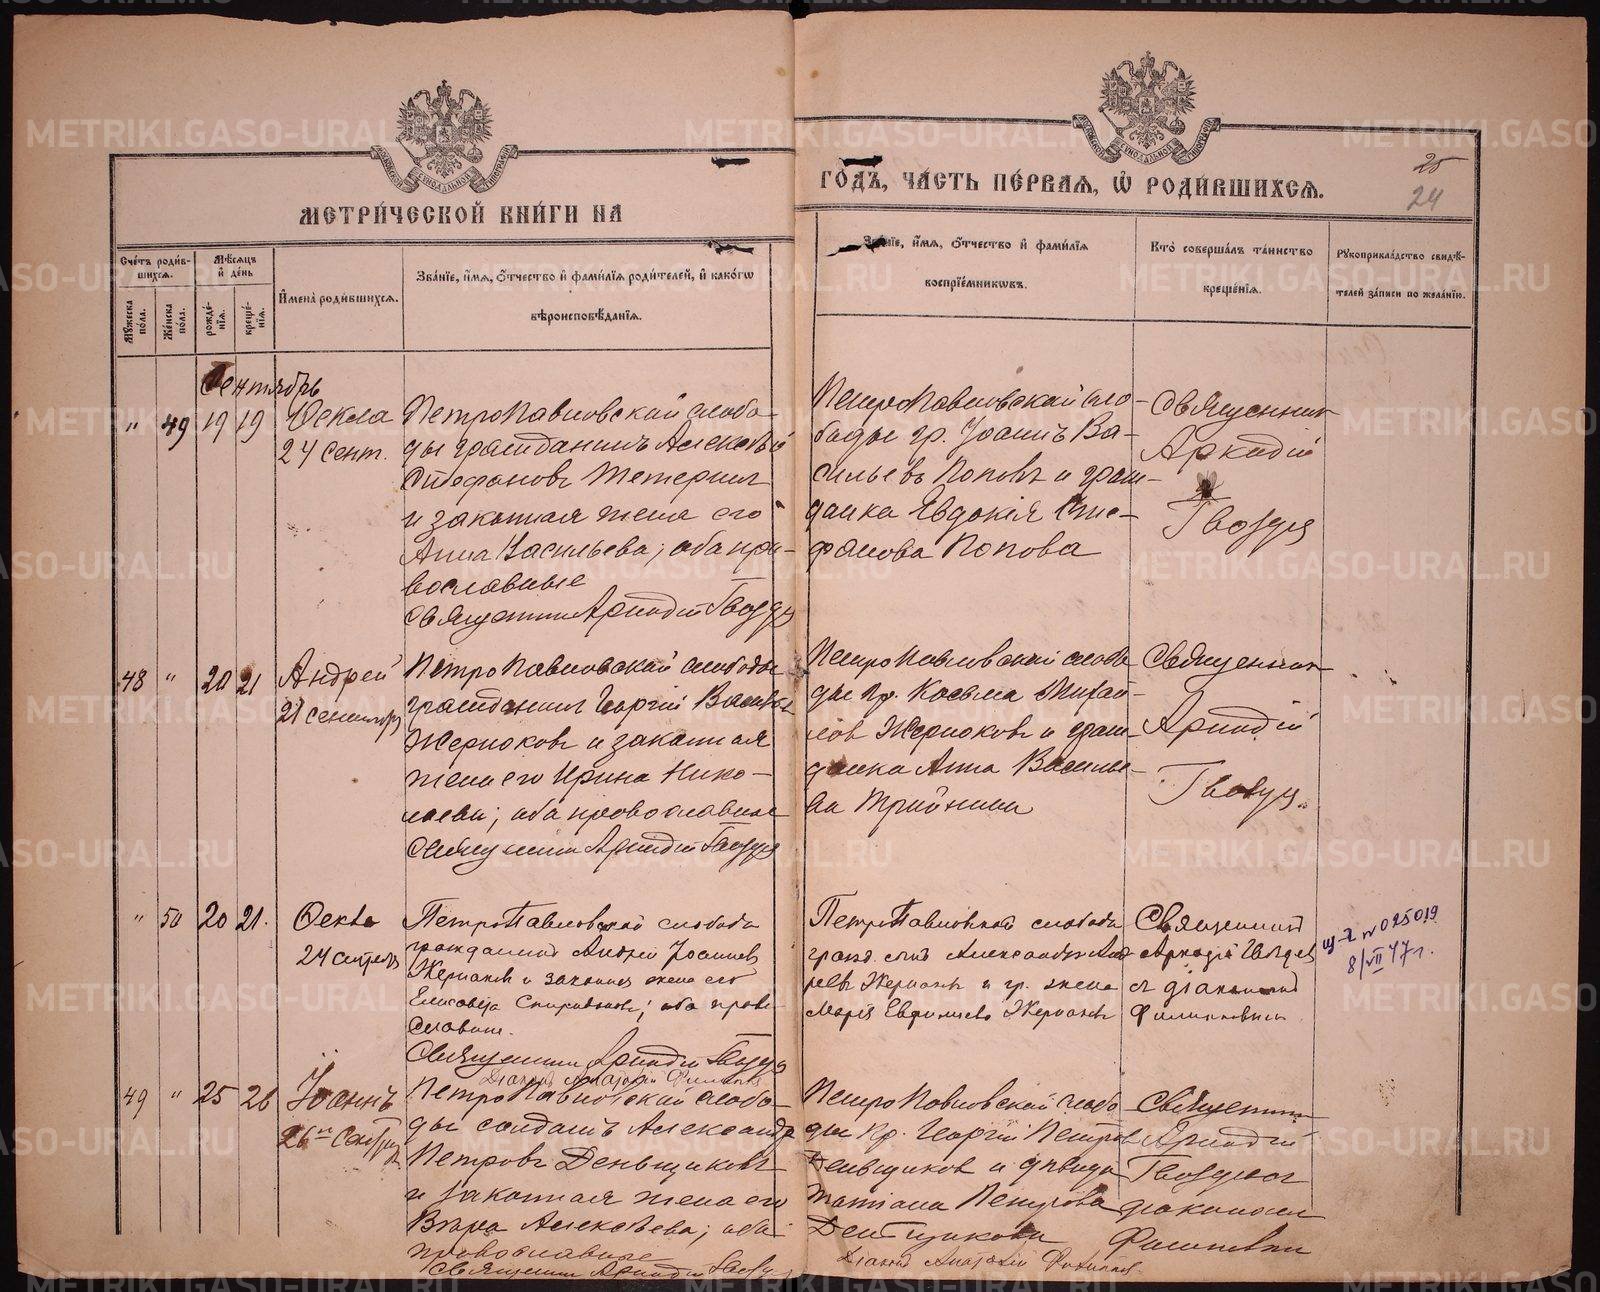 МЕТРИ́ЧЕСКОЙ КНИ́ГИ НА
ГО́ДЪ, ЧА́СТЬ ПЕ́РВАЯ, Ѡ҆ РОДИ́ВШИХСЯ.
25
24
Сче́тъ роди́вшихся.
Му́жеска по́ла.
Же́нска по́ла.
Мѣ́сяцъ и҆ де́нь
рожде́нїя.
креще́нїя.
И҆мена̀ роди́вшихся.
Зва́нїе, и҆́мя, ѻ҆́тчество и҆ фами́лїя роди́телей, и҆ како́гѡ
вѣроисповѣ́данїя.
Зва́нїе, и҆́мя, ѻ҆́тчество и҆ фами́лїя
воспрїе́мникѡвъ.
Кто̀ соверша́лъ та́инство
креще́нїя.
Рꙋкоприкла́дство свидѣ́-
телей за́писи по жела́нїю.
Сентябрь
" 49 19 19 Ѳекла
24 сент.
ПетроПавловской слобо-
ды гражданинъ Алексѣй
Стефановъ Тетерин
и законная жена его
Анна Васильева; оба пра-
вославные
Священник Аркадій Гвоздев
ПетроПавловской сло-
боды гр. Іоаннъ Ва-
сильевъ Поповъ и граж-
данка Евдокія Сте-
фанова Попова
Священник
Аркадій
Гвоздев
48 " 20 21 Андрей
21 сентября
ПетроПавловской слободы
гражданин Георгій Васильев
Жерноковъ и законная
жена его Ирина Нико-
лаева; оба православные
Священник Аркадій Гвоздев
ПетроПавловской слобо
ды гр. Косьма Михай-
лов Жерноковъ и граж-
данка Анна Василье-
ва
Священник
Аркадій
Гвоздев
" 50 20 21. Ѳекла
24 сентября
ПетроПавловской слободы
гражданин Андрей Іоаннов
и законная жена его
Елисавета; оба право-
славные.
Священник Аркадій Гвоздев
Діакон Анатолій
ПетроПавловской слободы
гражд. сын Александръ Анд
реевъ и гр. жена
Марія
Священник
Аркадій Гвоздев
с діаконом
Филипповым
№ 025019
8/VII 47 г.
49 " 25 26 Іоаннъ
26го Сентября
ПетроПавловской слобо-
ды солдатъ Александр
Петровъ Деньщиковъ
и законная жена его
Вѣра Алексѣева; оба
православные
Священник Аркадій Гвоздев
ПетроПавловской слобо
ды гр. Георгій Петров
Деньщиков и дѣвица
Татіана Петрова
Деньщикова
Діакон Анатолій
Священник
Аркадій
Гвоздев с
діаконом
METRIKI.GASO-URAL.RU